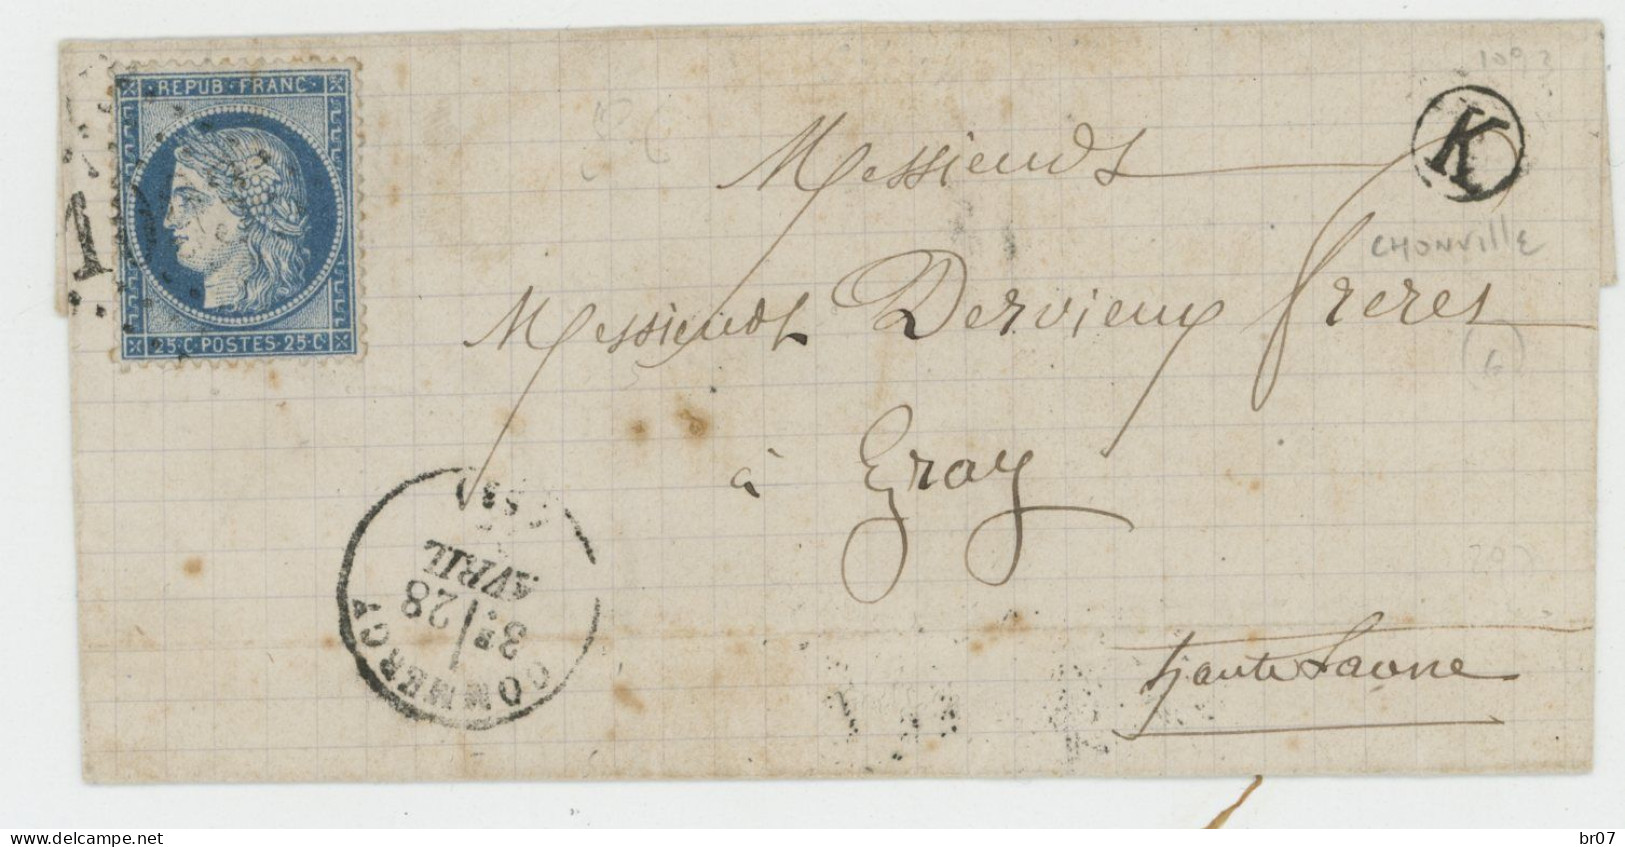 REPUB · FRANC ·
25 · C · POSTES · 25 · C ·
K
CHONVILLE
(6)
Messieurs
Messieurs Dervieux freres
à Gray
Haute Saone
COMMERCY
3E
28
AVRIL
(53)
www.delcampe.net
br07